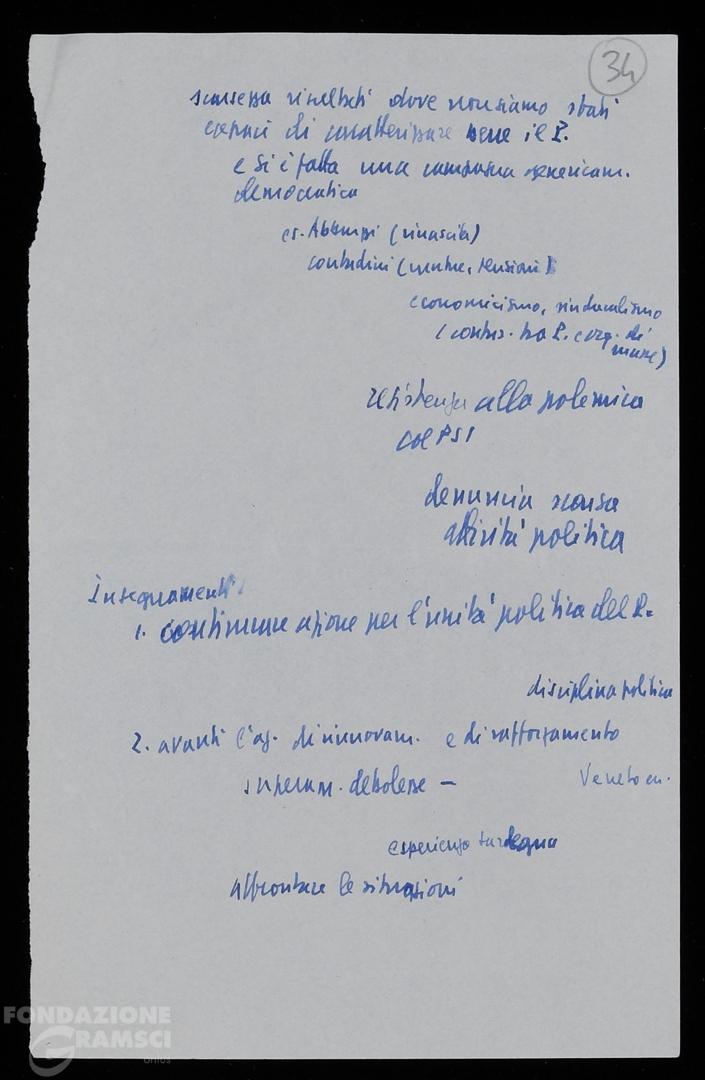 34
scarsezza risultati dove non siamo stati
capaci di caratterizzare bene il P.
e si è fatta una campagna genericam.
democratica
es. Abbruzzi (rinascita)
contadini (pensioni)
economicismo, sindacalismo
(confus. tra P. e org. di
massa)
resistenza alla polemica
col PSI
denuncia scarsa
attività politica
Insegnamenti
1. continuare azione per l'unità politica del P.
disciplina politica
2. avanti l'az. di rinnovam. e di rafforzamento
superam. debolezze –
Veneto
esperienza Sardegna
affrontare le situazioni
FONDAZIONE
GRAMSCI
onlus